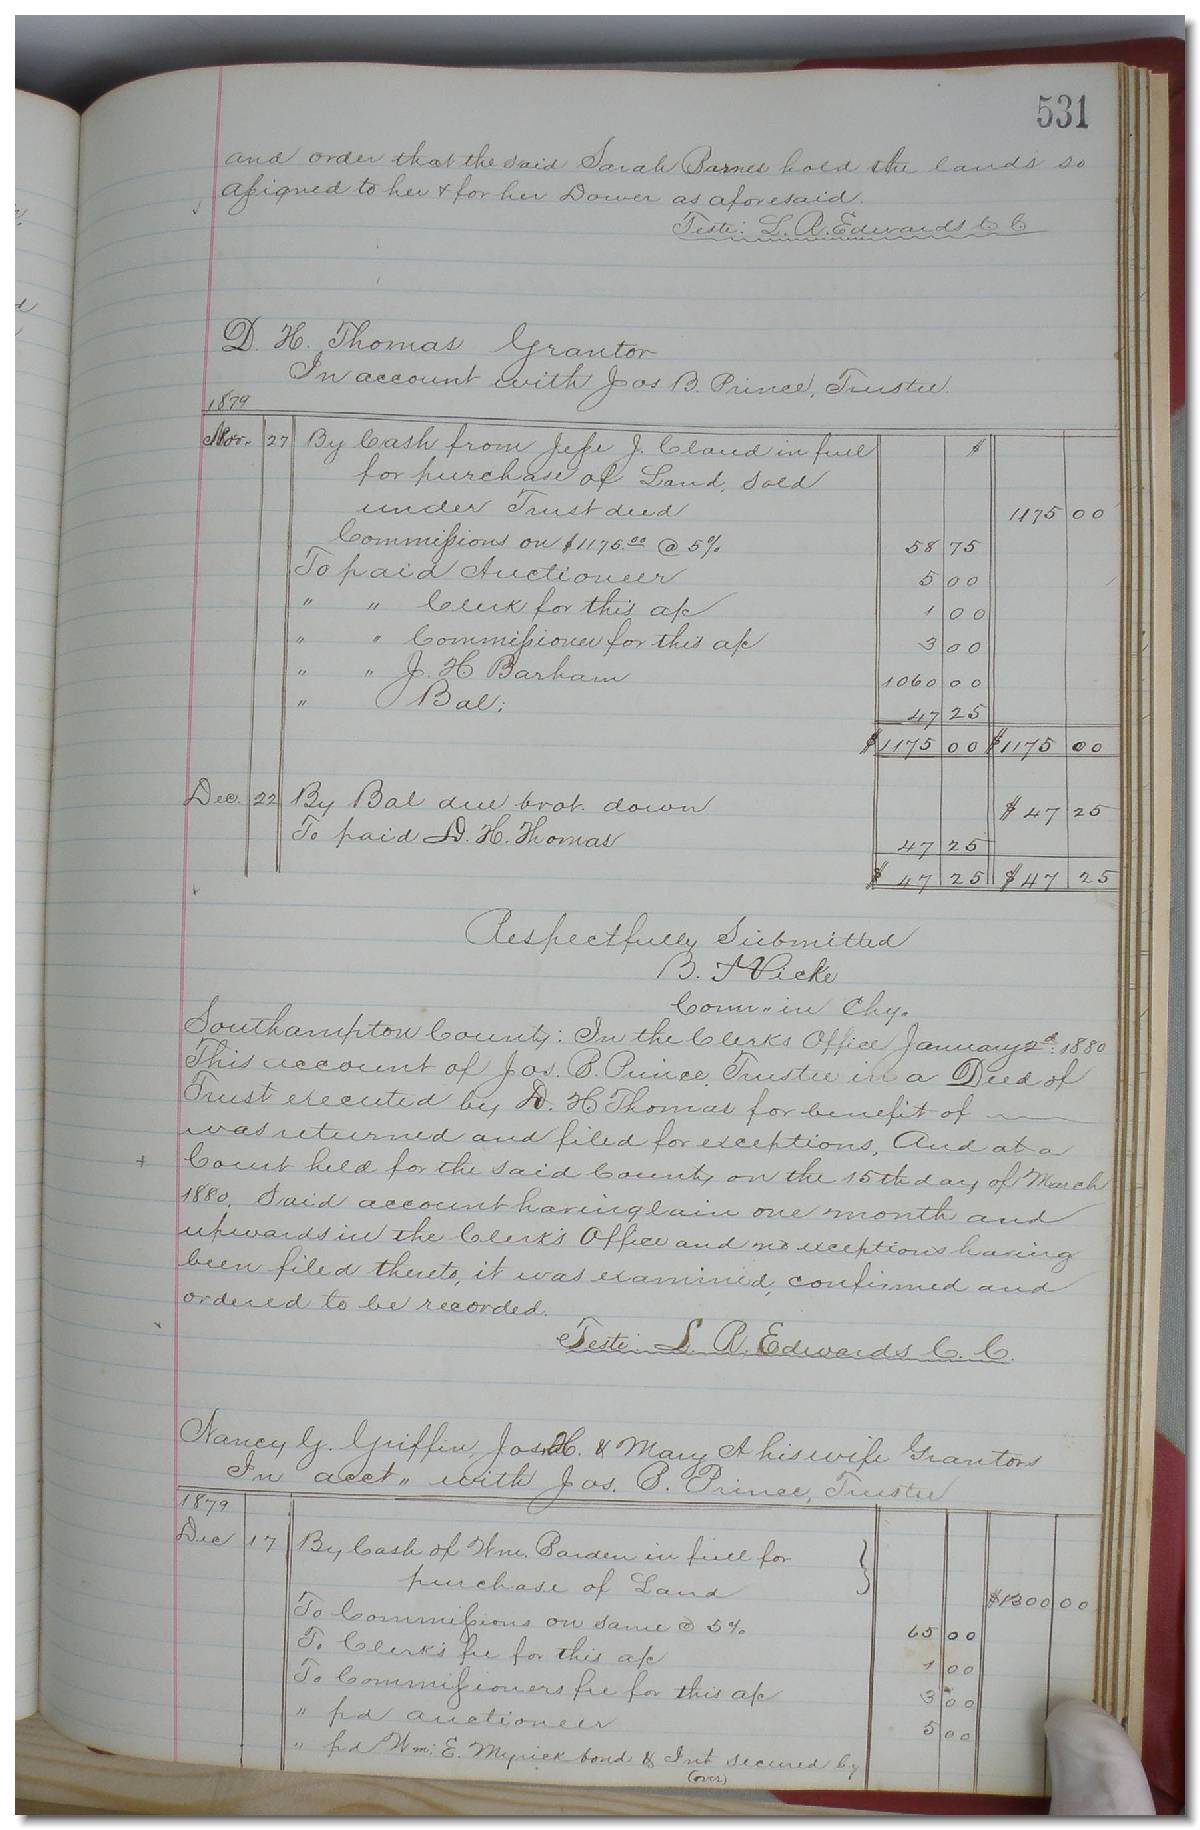 531
and order that the said Sarah Barnes hold the lands so
assigned to her & for her Dower as aforesaid.
Teste: L. R. Edwards C C
D. H. Thomas Grantor
In account with Jos B. Prince, Trustee
1879
Nov. 27 By Cash from Jesse J. Claud in full $
for purchase of Land, sold
under Trust deed 1175 00
Commissions on $1175.00 @ 5% 58 75
To paid Auctioneer 5 00
" " Clerk for this a/c 1 00
" " Commissioner for this a/c 3 00
" " J. H Barham 1060 00
" Bal: 47 25
$1175 00 $1175 00
Dec. 22 By Bal due brot. down $47 25
To paid D. H. Thomas 47 25
$47 25 $47 25
Respectfully Submitted
B. F Vicke
Com. in Chy.
Southampton County: In the Clerks Office January 2d. 1880
This account of Jos. B. Prince, Trustee in a Deed of
Trust executed by D. H Thomas for benefit of
was returned and filed for exceptions, And at a
Court held for the said County on the 15th day of March
1880. Said account having lain one month and
upwards in the Clerk's Office and no exceptions having
been filed thereto, it was examined, confirmed and
ordered to be recorded.
Teste: L. R. Edwards C. C.
Nancy G. Griffin, Jos. H. & Mary A his wife Grantors
In acct" with Jos. B. Prince, Trustee
1879
Dec 17 By Cash of Wm. Barden in full for
purchase of Land $1300 00
To Commissions on same @ 5% 65 00
To Clerk's fee for this a/c 1 00
To Commissioners fee for this a/c 3 00
" pd auctioneer 5 00
" pd Wm: E. Myrick bond & Int secured by
(over)